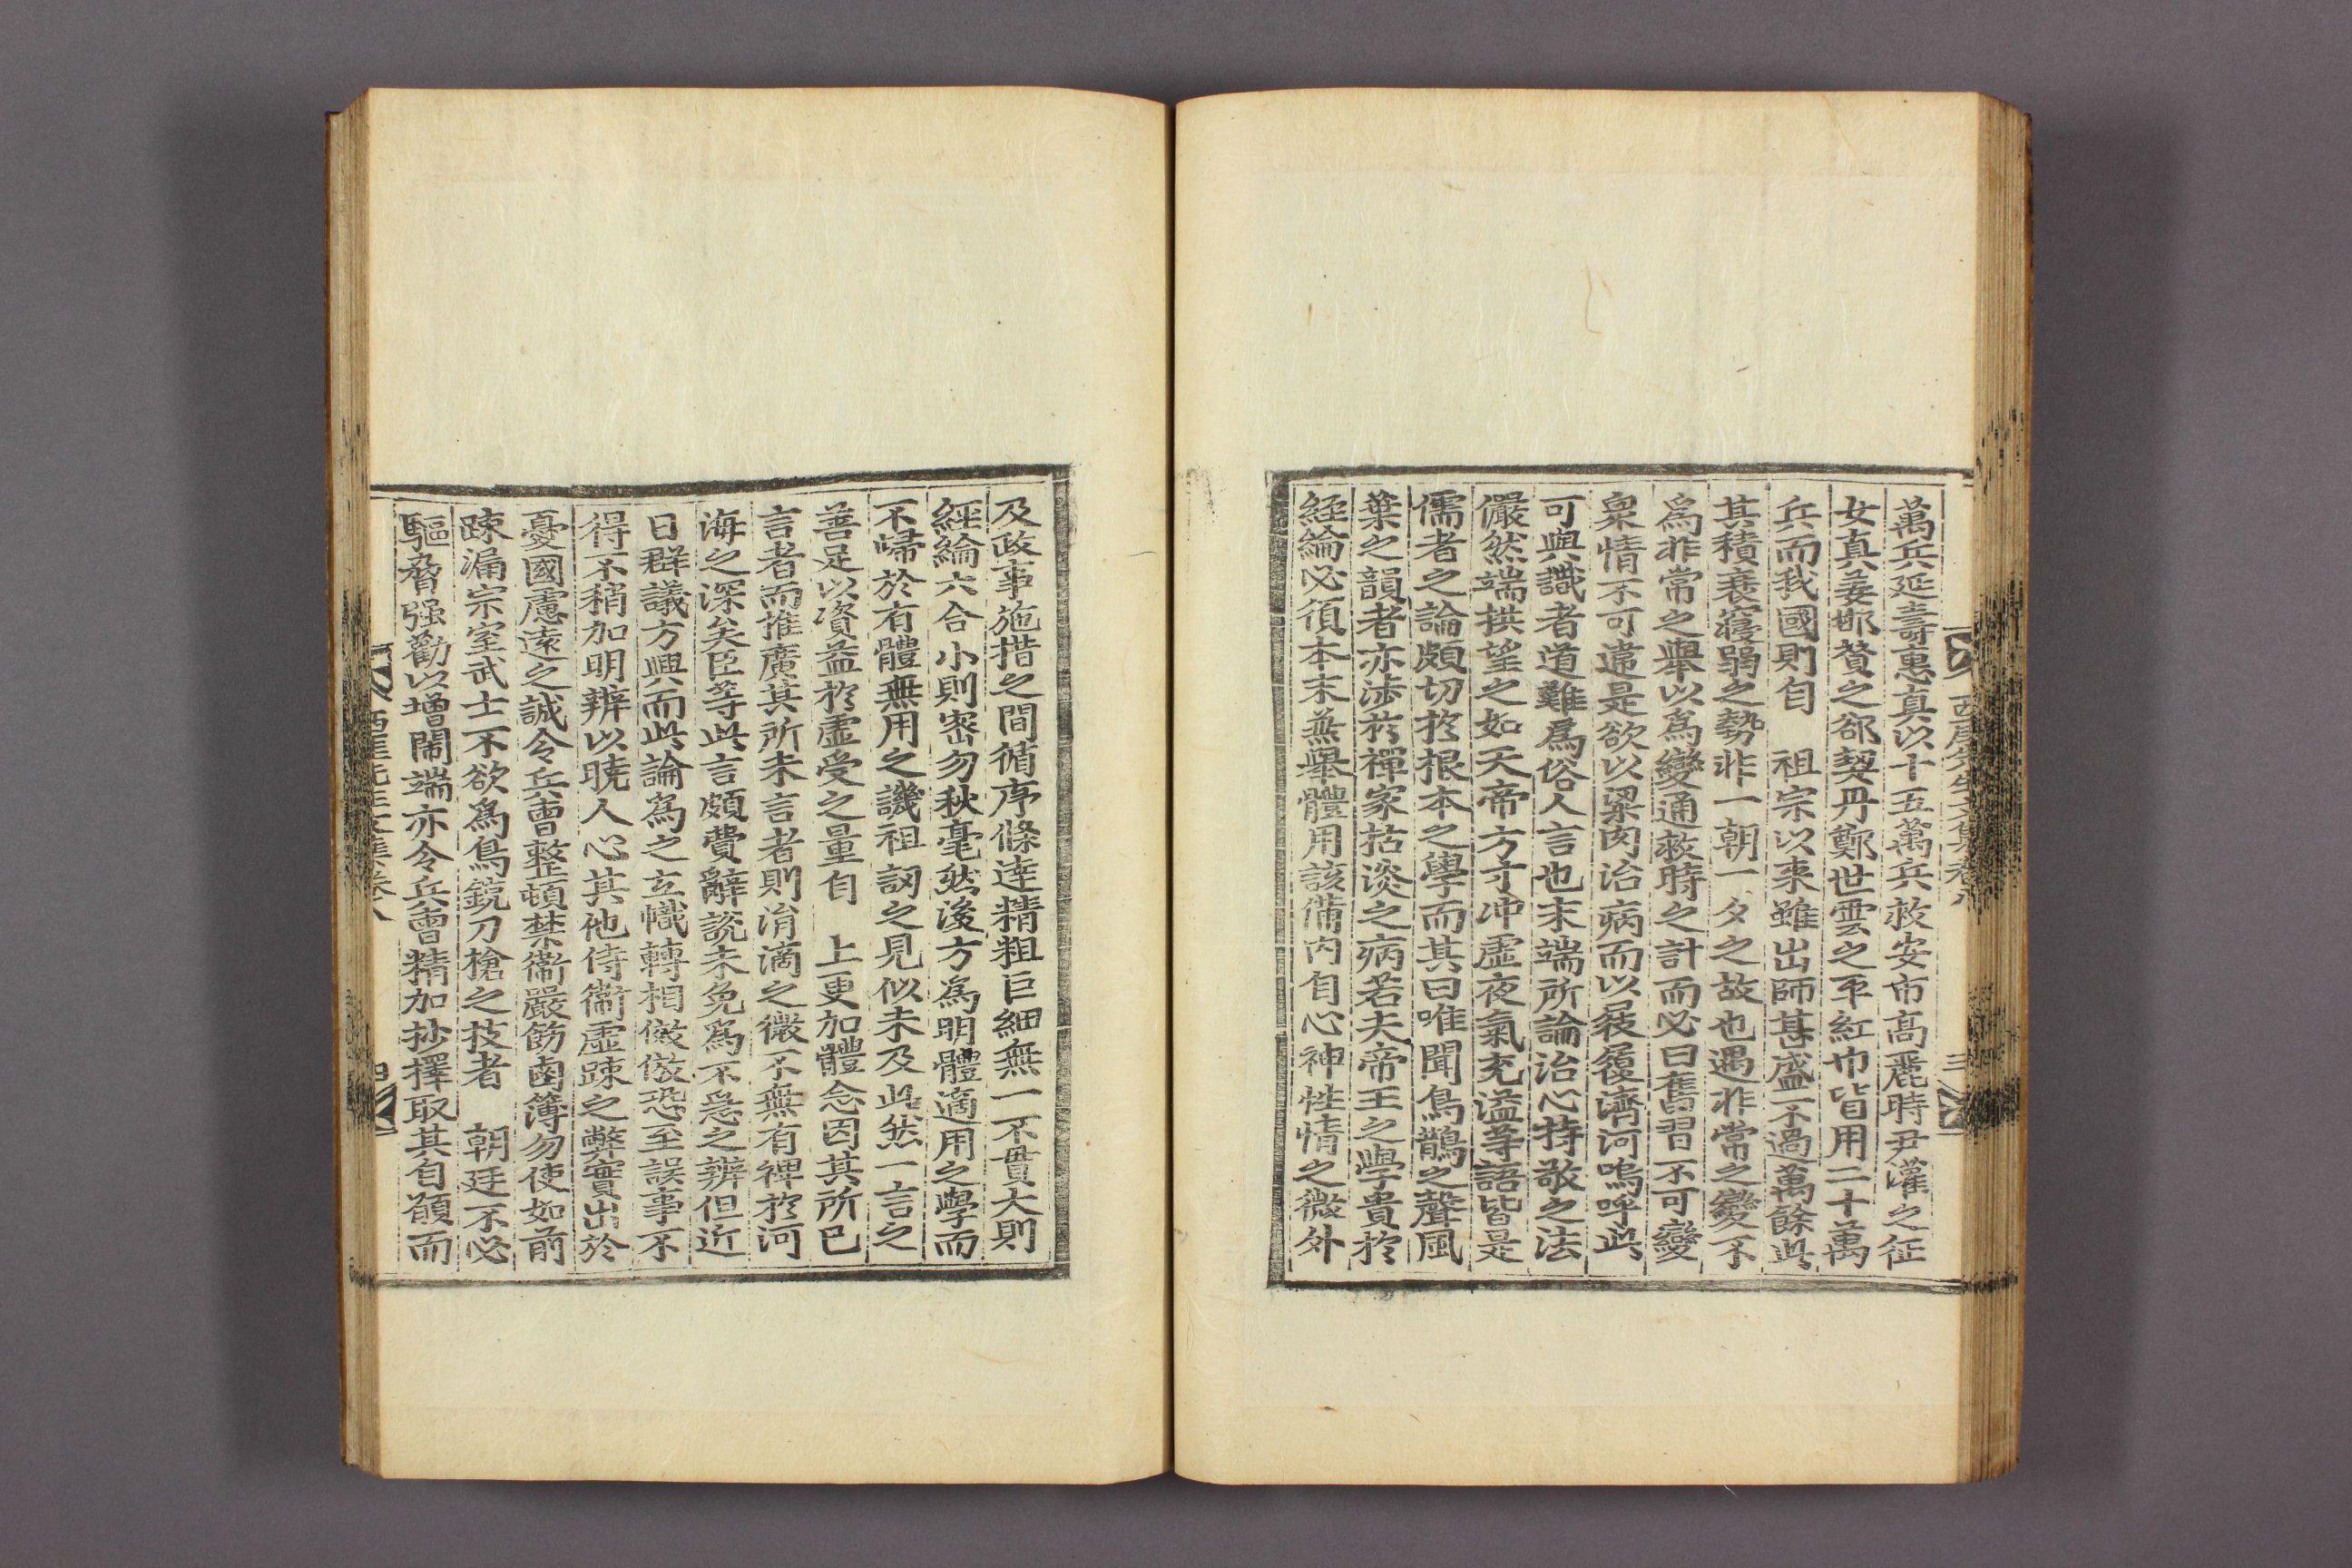 西厓先生文集卷八
三
萬兵延壽惠真以十五萬兵救安市高麗時尹瓘之征
女真姜邯贊之郤契丹鄭世雲之平紅巾皆用二十萬
兵而我國則自 祖宗以來雖出師甚盛不過萬餘此
其積衰寢弱之勢非一朝一夕之故也遇非常之變不
爲非常之舉以爲變通救時之計而必曰舊習不可變
衆情不可違是欲以粱肉治病而以屐履濟河嗚呼此
可與識者道難爲俗人言也末端所論治心持敬之法
儼然端拱望之如天帝方寸冲虛夜氣充溢等語皆是
儒者之論頗切於根本之學而其曰唯聞鳥鵲之聲風
葉之韻者亦涉於禪家枯淡之病若夫帝王之學貴於
經綸必須本末兼舉體用該備内自心神性情之微外
及政事施措之間循序條達精粗巨細無一不貫大則
經綸六合小則密勿秋毫然後方爲明體適用之學而
不歸於有體無用之譏祖訒之見似未及此然一言之
善足以資益於虛受之量自 上更加體念因其所已
言者而推廣其所未言者則涓滴之微不無有裨於河
海之深矣臣等此言頗費辭說未免爲不急之辨但近
日群議方興而此論爲之立幟轉相倣傚恐至誤事不
得不稍加明辨以曉人心其他侍衞虛踈之弊實出於
憂國慮遠之誠令兵曹整頓禁衞嚴飭鹵簿勿使如前
踈漏宗室武士不欲爲鳥銃刀槍之技者 朝廷不必
驅脅强勸以增鬧端亦令兵曹精加抄擇取其自願而
西厓先生文集卷八
四